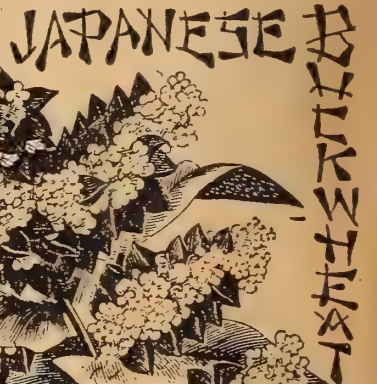 JAPANESE
BUCKWHEAT